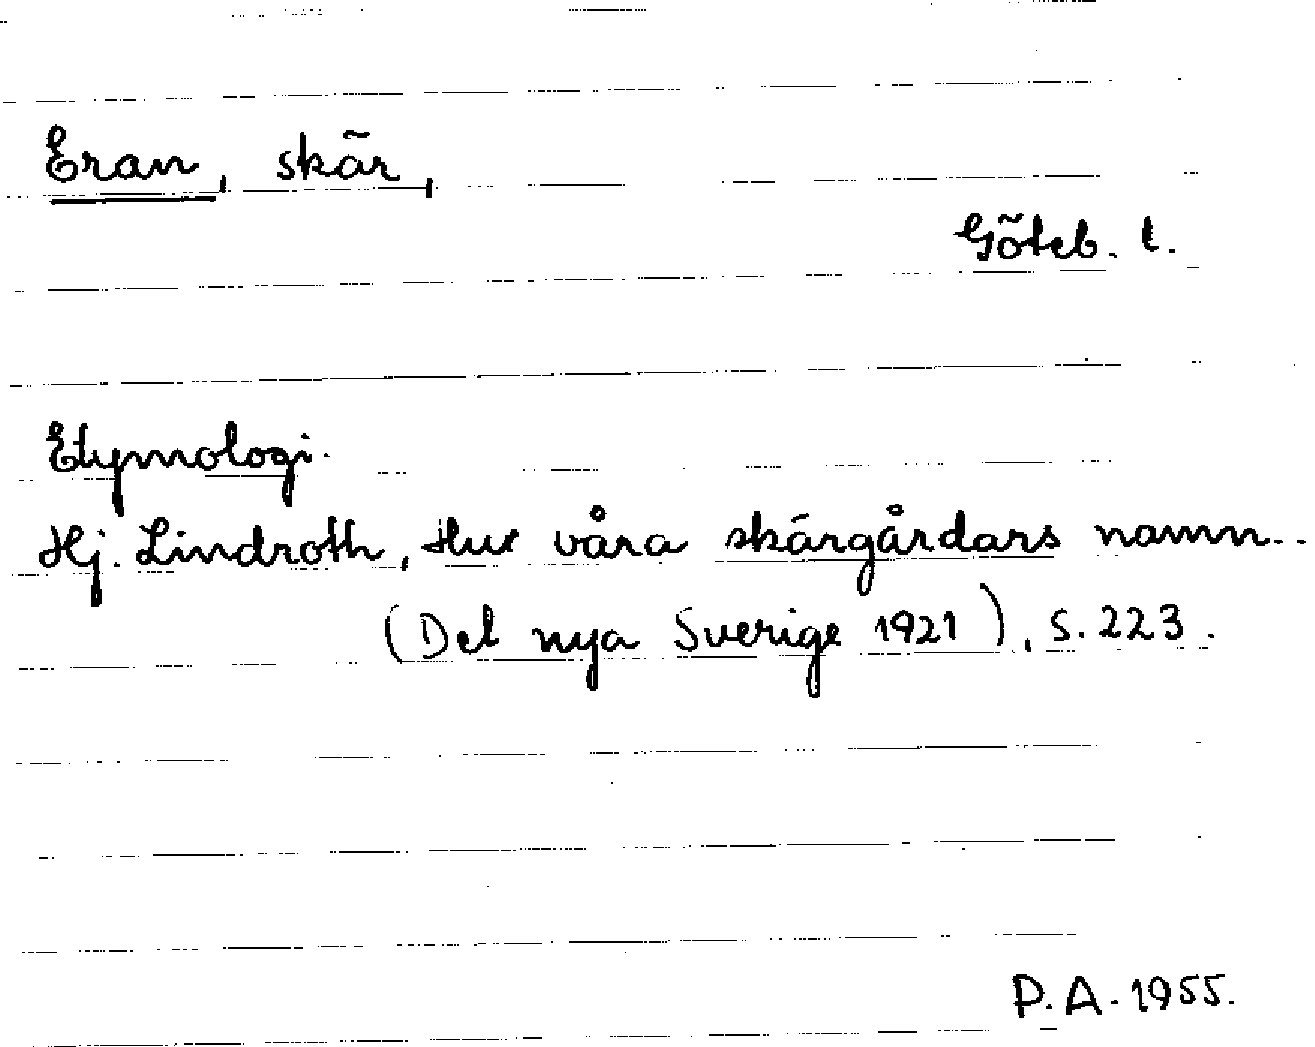 Eran, skär,
Göteb. l.
Etymologi.
Hj. Lindroth, Hur våra skärgårdars namn..
(Det nya Sverige 1921), s. 223.
P. A. 1955.